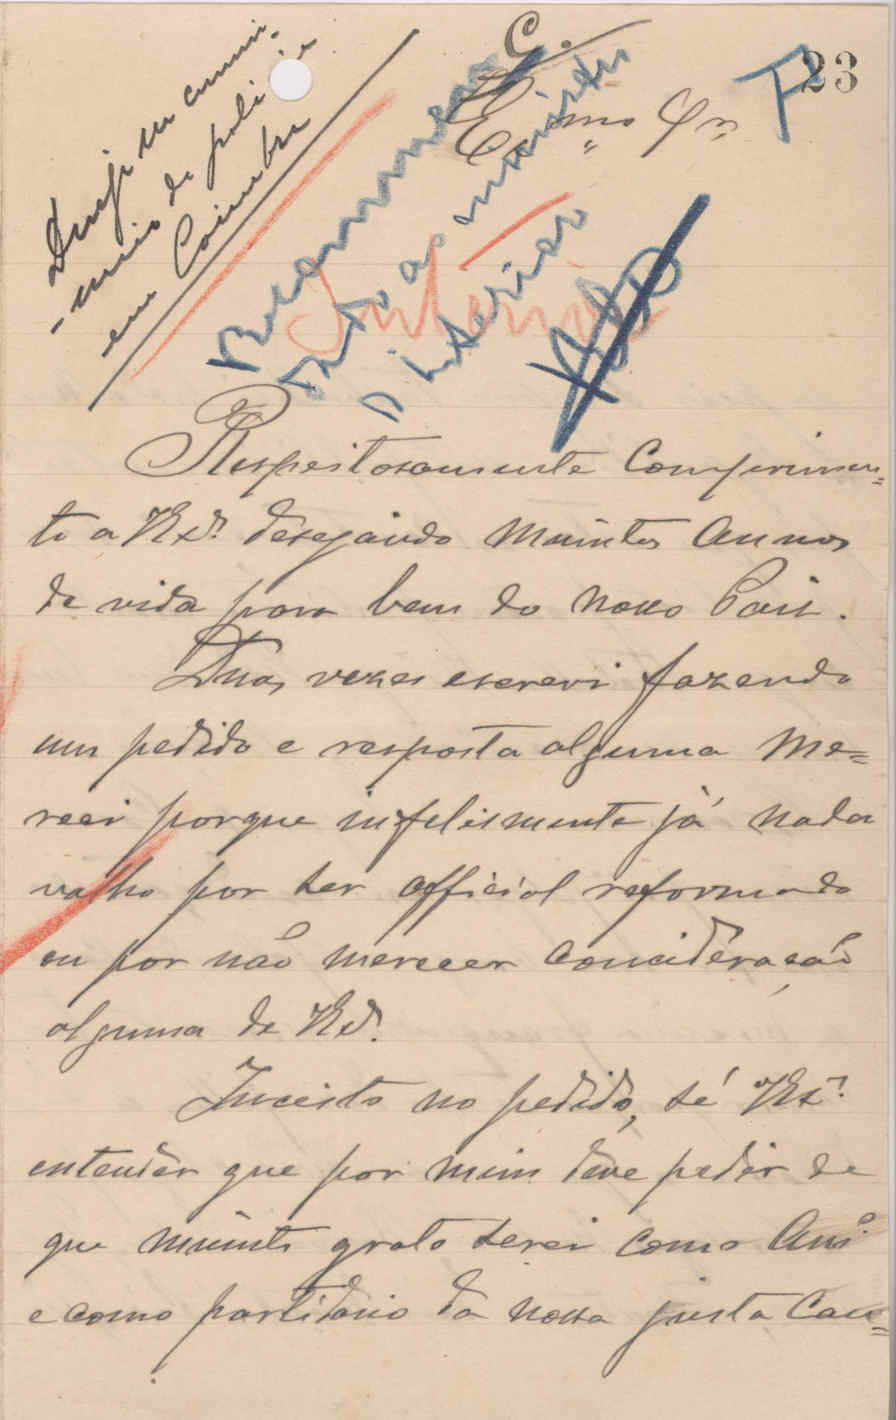 C.
23
F
Exmo Snr
Deseja ser commis-
-sario de policia
em Coimbra
Recommen
dado ao ministro
d interior
Interior
Respeitosamente Comprimen=
to a VExª. desejando muintos Annos
de vida para bem do nosso Pais.
Duas vezes escrevi fazendo
um pedido e resposta alguma me=
reci porque infelismente já nada
valho por ser official reformado
ou por não merecer concideração
alguma de VExª.
Inceisto no pedido, sé VExª.
entender que por mim deve pedir de
que muinto grato serei como Amº.
e como partidario da nossa justa Cau=